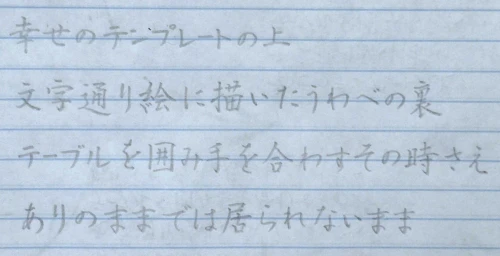 幸せのテンプレートの上
文字通り絵に描いたうわべの裏
テーブルを囲み手を合わすその時さえ
ありのままでは居られないまま